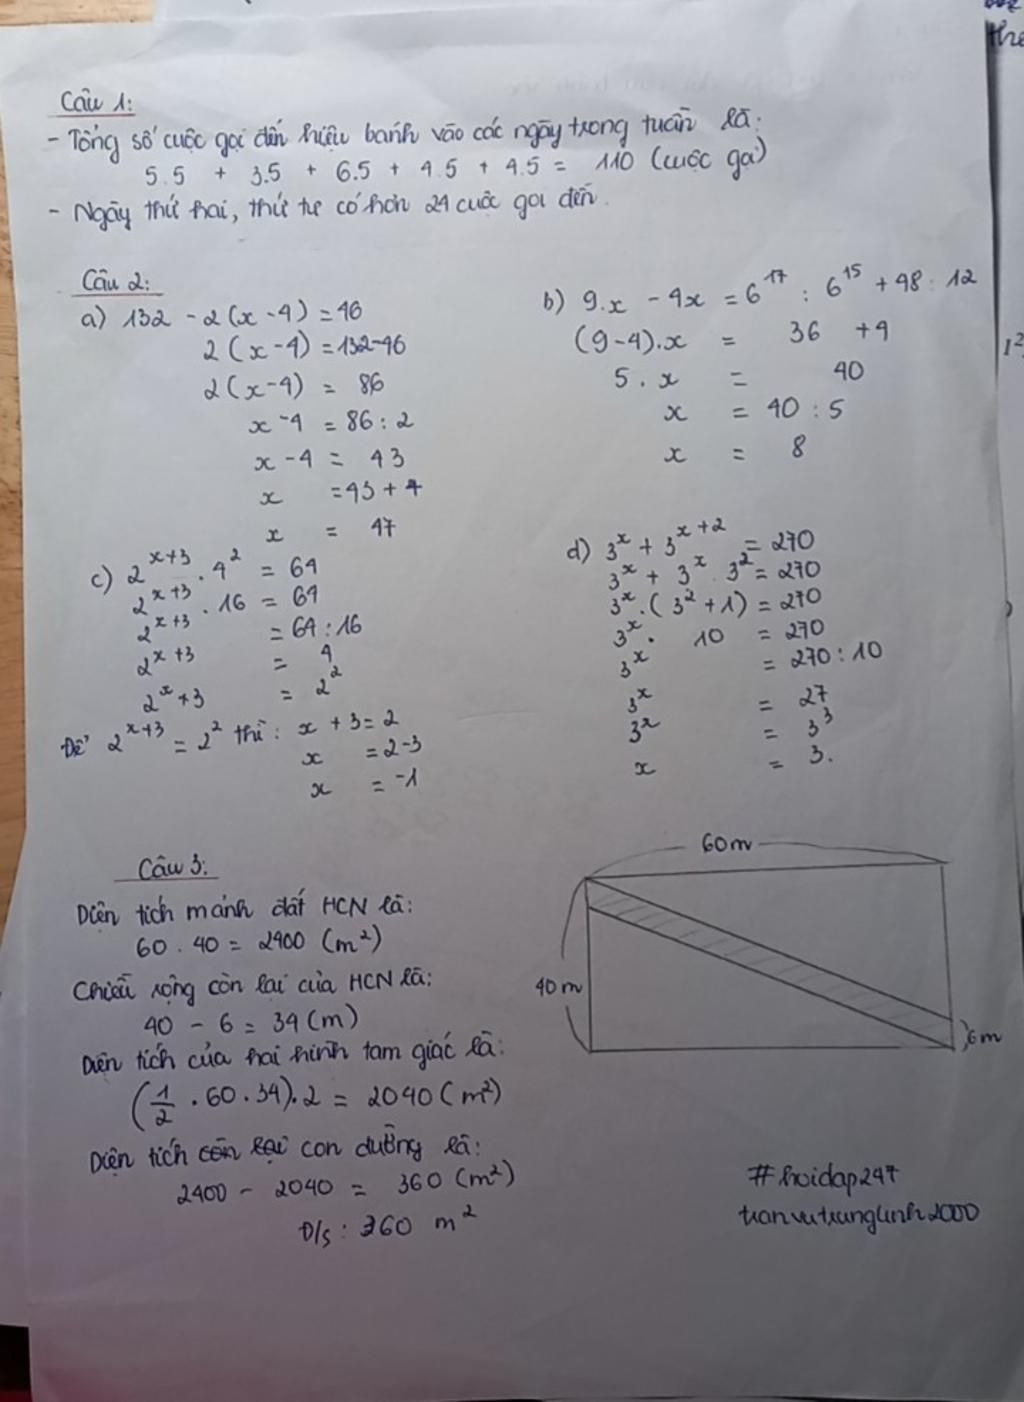 Câu 1:
- Tổng số cuộc gọi đến hiệu bánh vào các ngày trong tuần là:
5.5 + 3.5 + 6.5 + 4.5 + 4.5 = 110 (cuộc gọi)
- Ngày thứ hai, thứ tư có hơn 24 cuộc gọi đến.
Câu 2:
a) 132 - 2(x - 4) = 46
2(x - 4) = 132 - 46
2(x - 4) = 86
x - 4 = 86 : 2
x - 4 = 43
x = 43 + 4
x = 47
b) 9.x - 4x = 6^17 : 6^15 + 48 : 12
(9 - 4).x = 36 + 4
5 . x = 40
x = 40 : 5
x = 8
c) 2^x+3 . 4^2 = 64
2^x+3 . 16 = 64
2^x+3 = 64 : 16
2^x+3 = 4
2^x+3 = 2^2
Để 2^x+3 = 2^2 thì: x + 3 = 2
x = 2 - 3
x = -1
d) 3^x + 3^x+2 = 270
3^x + 3^x . 3^2 = 270
3^x . (3^2 + 1) = 270
3^x . 10 = 270
3^x = 270 : 10
3^x = 27
3^x = 3^3
x = 3.
Câu 3:
Diện tích mảnh đất HCN là:
60 . 40 = 2400 (m²)
Chiều rộng còn lại của HCN là:
40 - 6 = 34 (m)
Diện tích của hai hình tam giác là:
(1/2 . 60 . 34) . 2 = 2040 (m²)
Diện tích còn lại con đường là:
2400 - 2040 = 360 (m²)
Đ/s: 360 m²
60m
40m
6m
#hoidap247
tranvutrunglinh2000